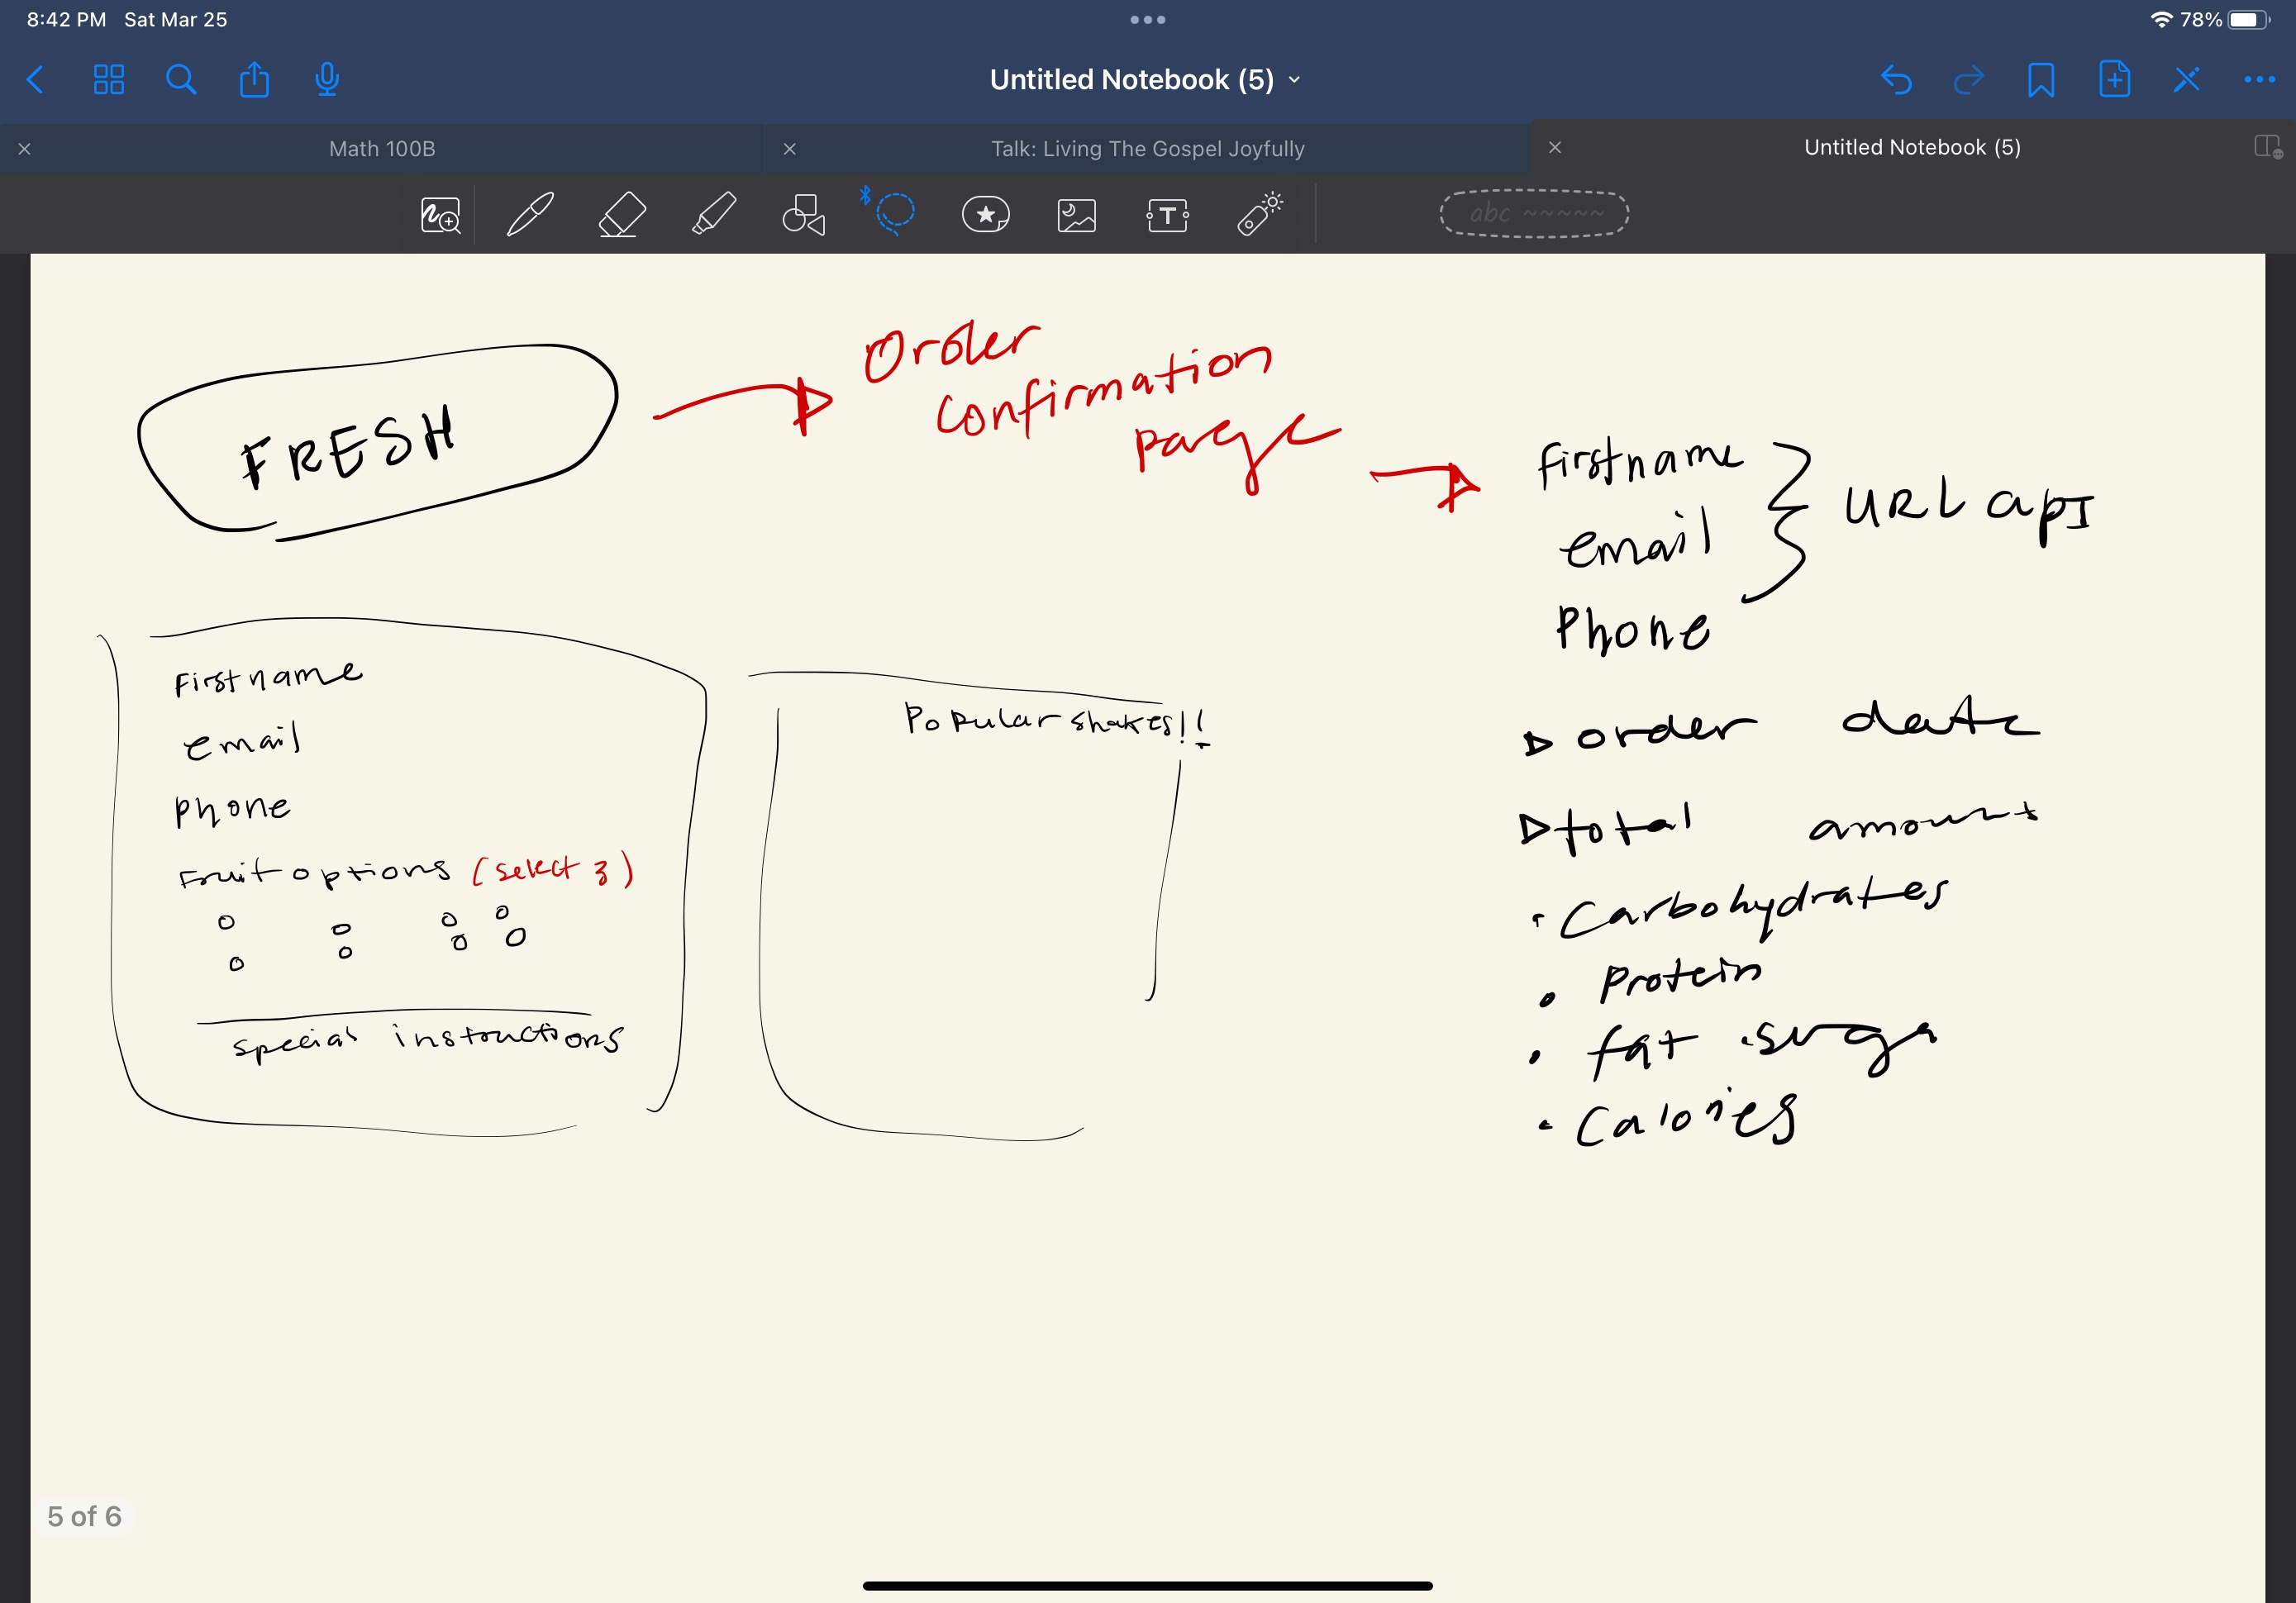 8:42 PM Sat Mar 25
78%
Untitled Notebook (5)
Math 100B
Talk: Living The Gospel Joyfully
Untitled Notebook (5)
abc
T
FRESH
Order
Confirmation
Page
firstname
email
Phone
URL apI
order date
total amount
Carbohydrates
Protein
fat sugar
Calories
Firstname
email
phone
Fruit options (select 3)
special instructions
Popular shakes!!
5 of 6